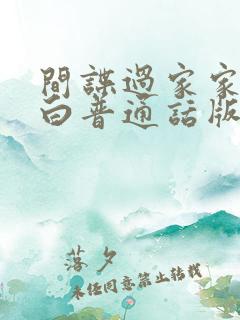 間諜過家家
白普通話版
落夕
未經同意禁止轉載